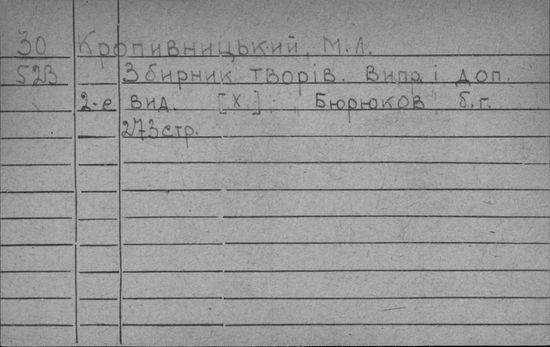 30 Кропивницький, М.Л.
523 Збирник творів. Випр і доп.
2-е вид. [Х.]. Бюрюков б.г.
273 стр.